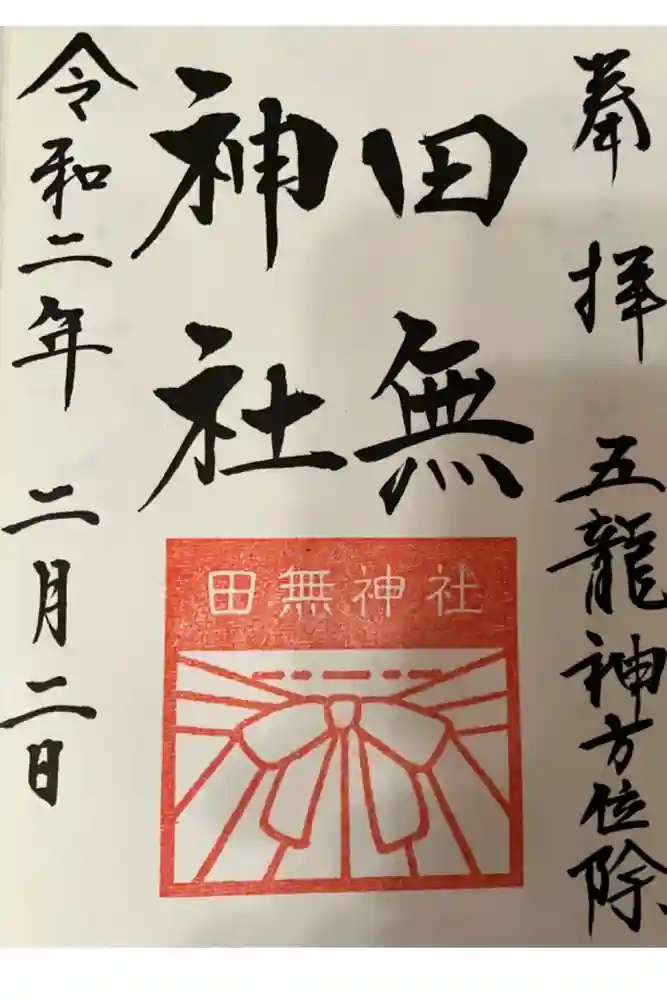 奉拝　五龍神方位除
田無
神社
田無神社
令和二年　二月二日